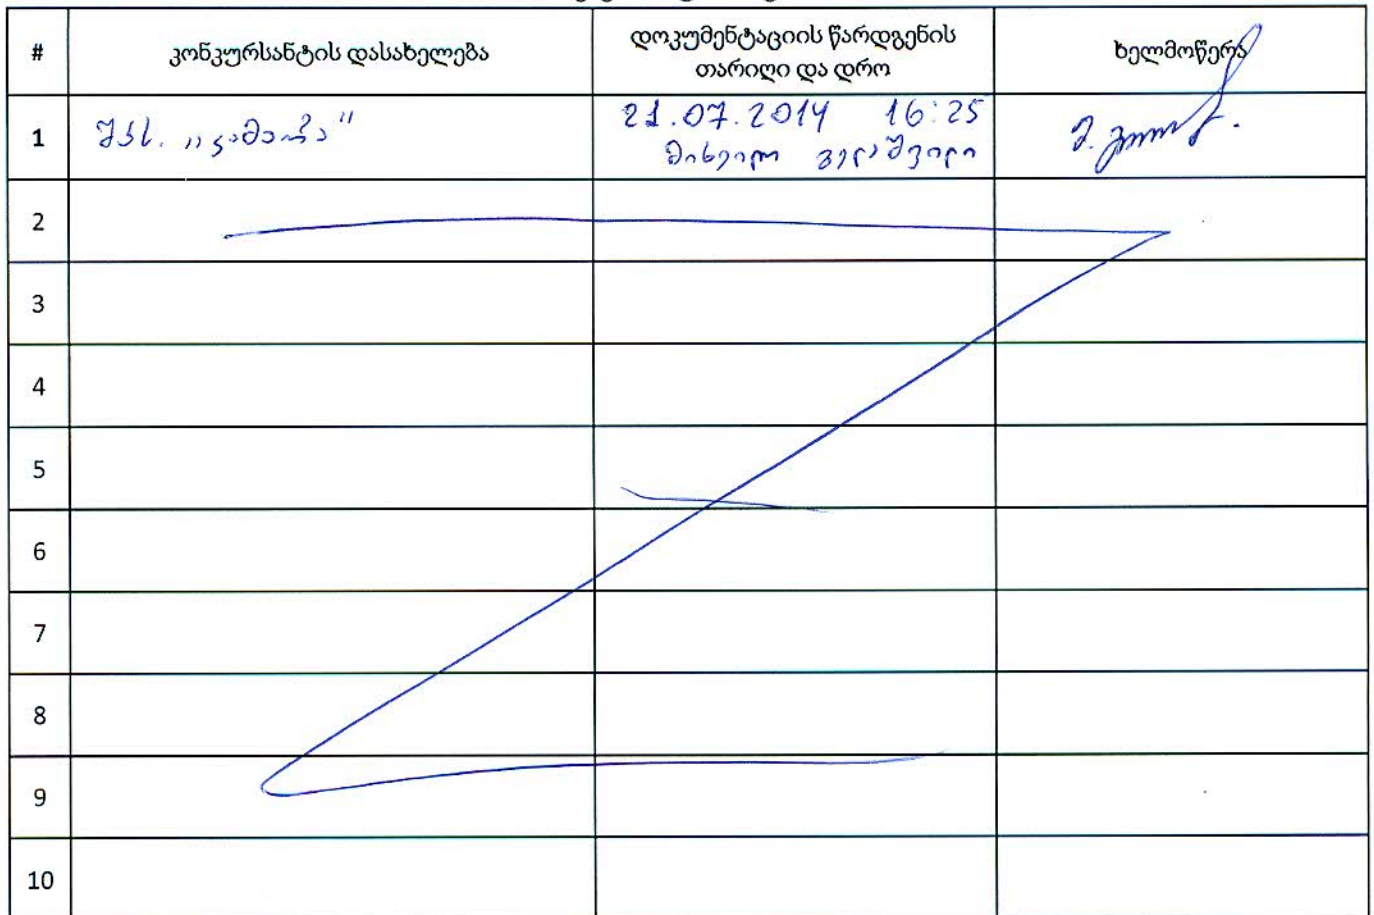 #
კონკურსანტის დასახელება
დოკუმენტაციის წარდგენის
თარიღი და დრო
ხელმოწერა
1
შპს. „კამარა"
21.07.2014 16:25
მიხეილ გელაშვილი
2
3
4
5
6
7
8
9
10